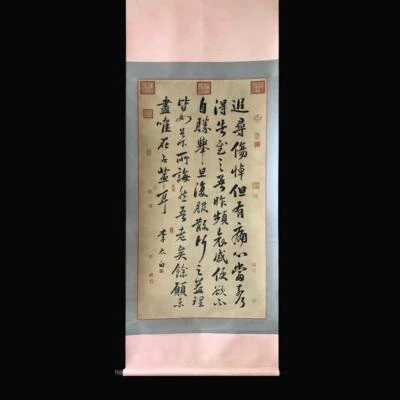 追尋傷悼但有痛心當奈何
得告慰之吾昨頻哀感便欲不
自勝舉旦復服散行之益理
皆如足下所誨然吾老矣餘願未
盡唯在子輩耳
李太白